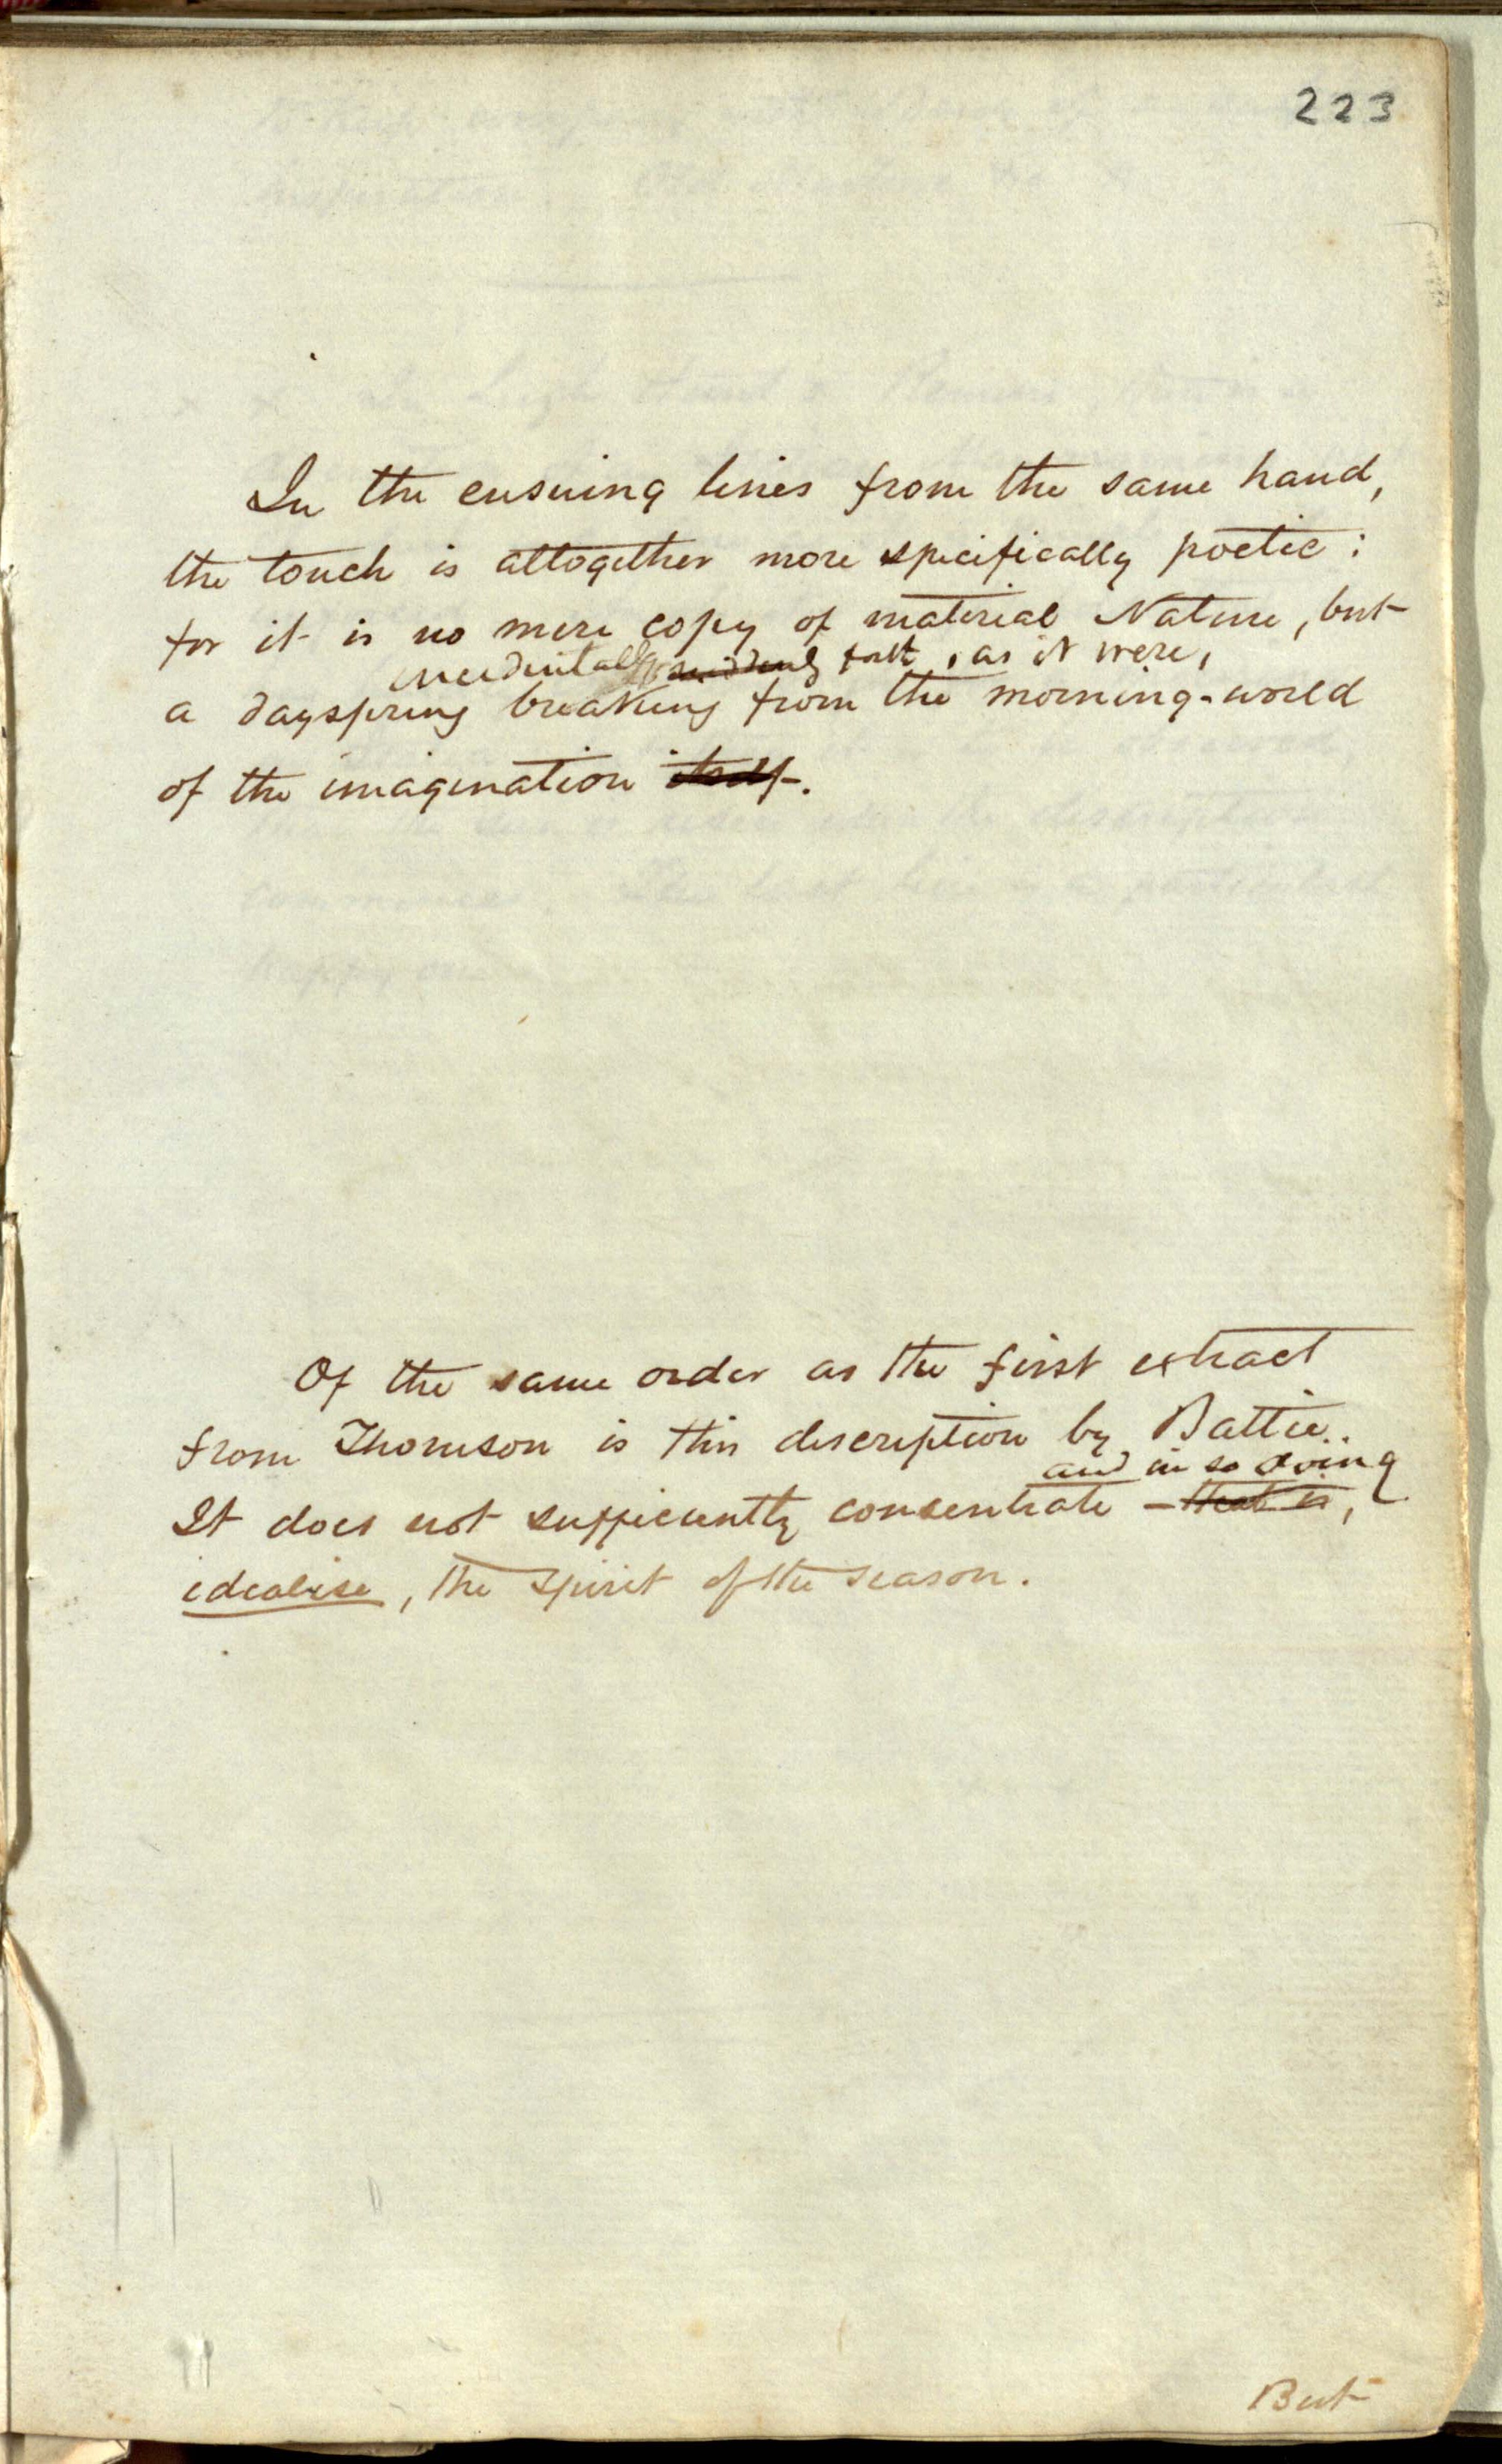 223
In the ensuing lines from the same hand,
the touch is altogether more specifically poetic:
for it is no mere copy of material Nature, but
incidentally suddenly forth, as it were,
a dayspring breaking from the morning-world
of the imagination itself.
Of the same order as the first extract
from Thomson is this description by Battie.
and in so doing
It does not sufficiently consentrate – that is,
idealise, the spirit of the season.
But